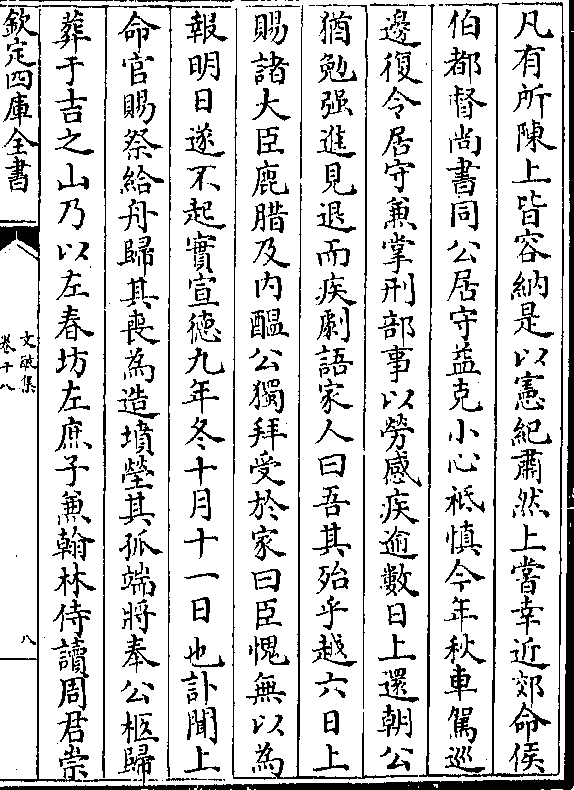 凡有所陳上皆容納是以憲紀肅然上嘗幸近郊命侯
伯都督尚書同公居守益克小心祗慎今年秋車駕巡
邊復令居守兼掌刑部事以勞感疾逾數日上還朝公
猶勉强進見退而疾劇語家人曰吾其殆乎越六日上
賜諸大臣鹿腊及内醖公獨拜受於家曰臣愧無以為
報明日遂不起實宣德九年冬十月十一日也訃聞上
命官賜祭給舟歸其喪為造墳塋其孤端將奉公柩歸
葬于吉之山乃以左春坊左庶子兼翰林侍讀周君崇
欽定四庫全書
文敏集
卷十八
八